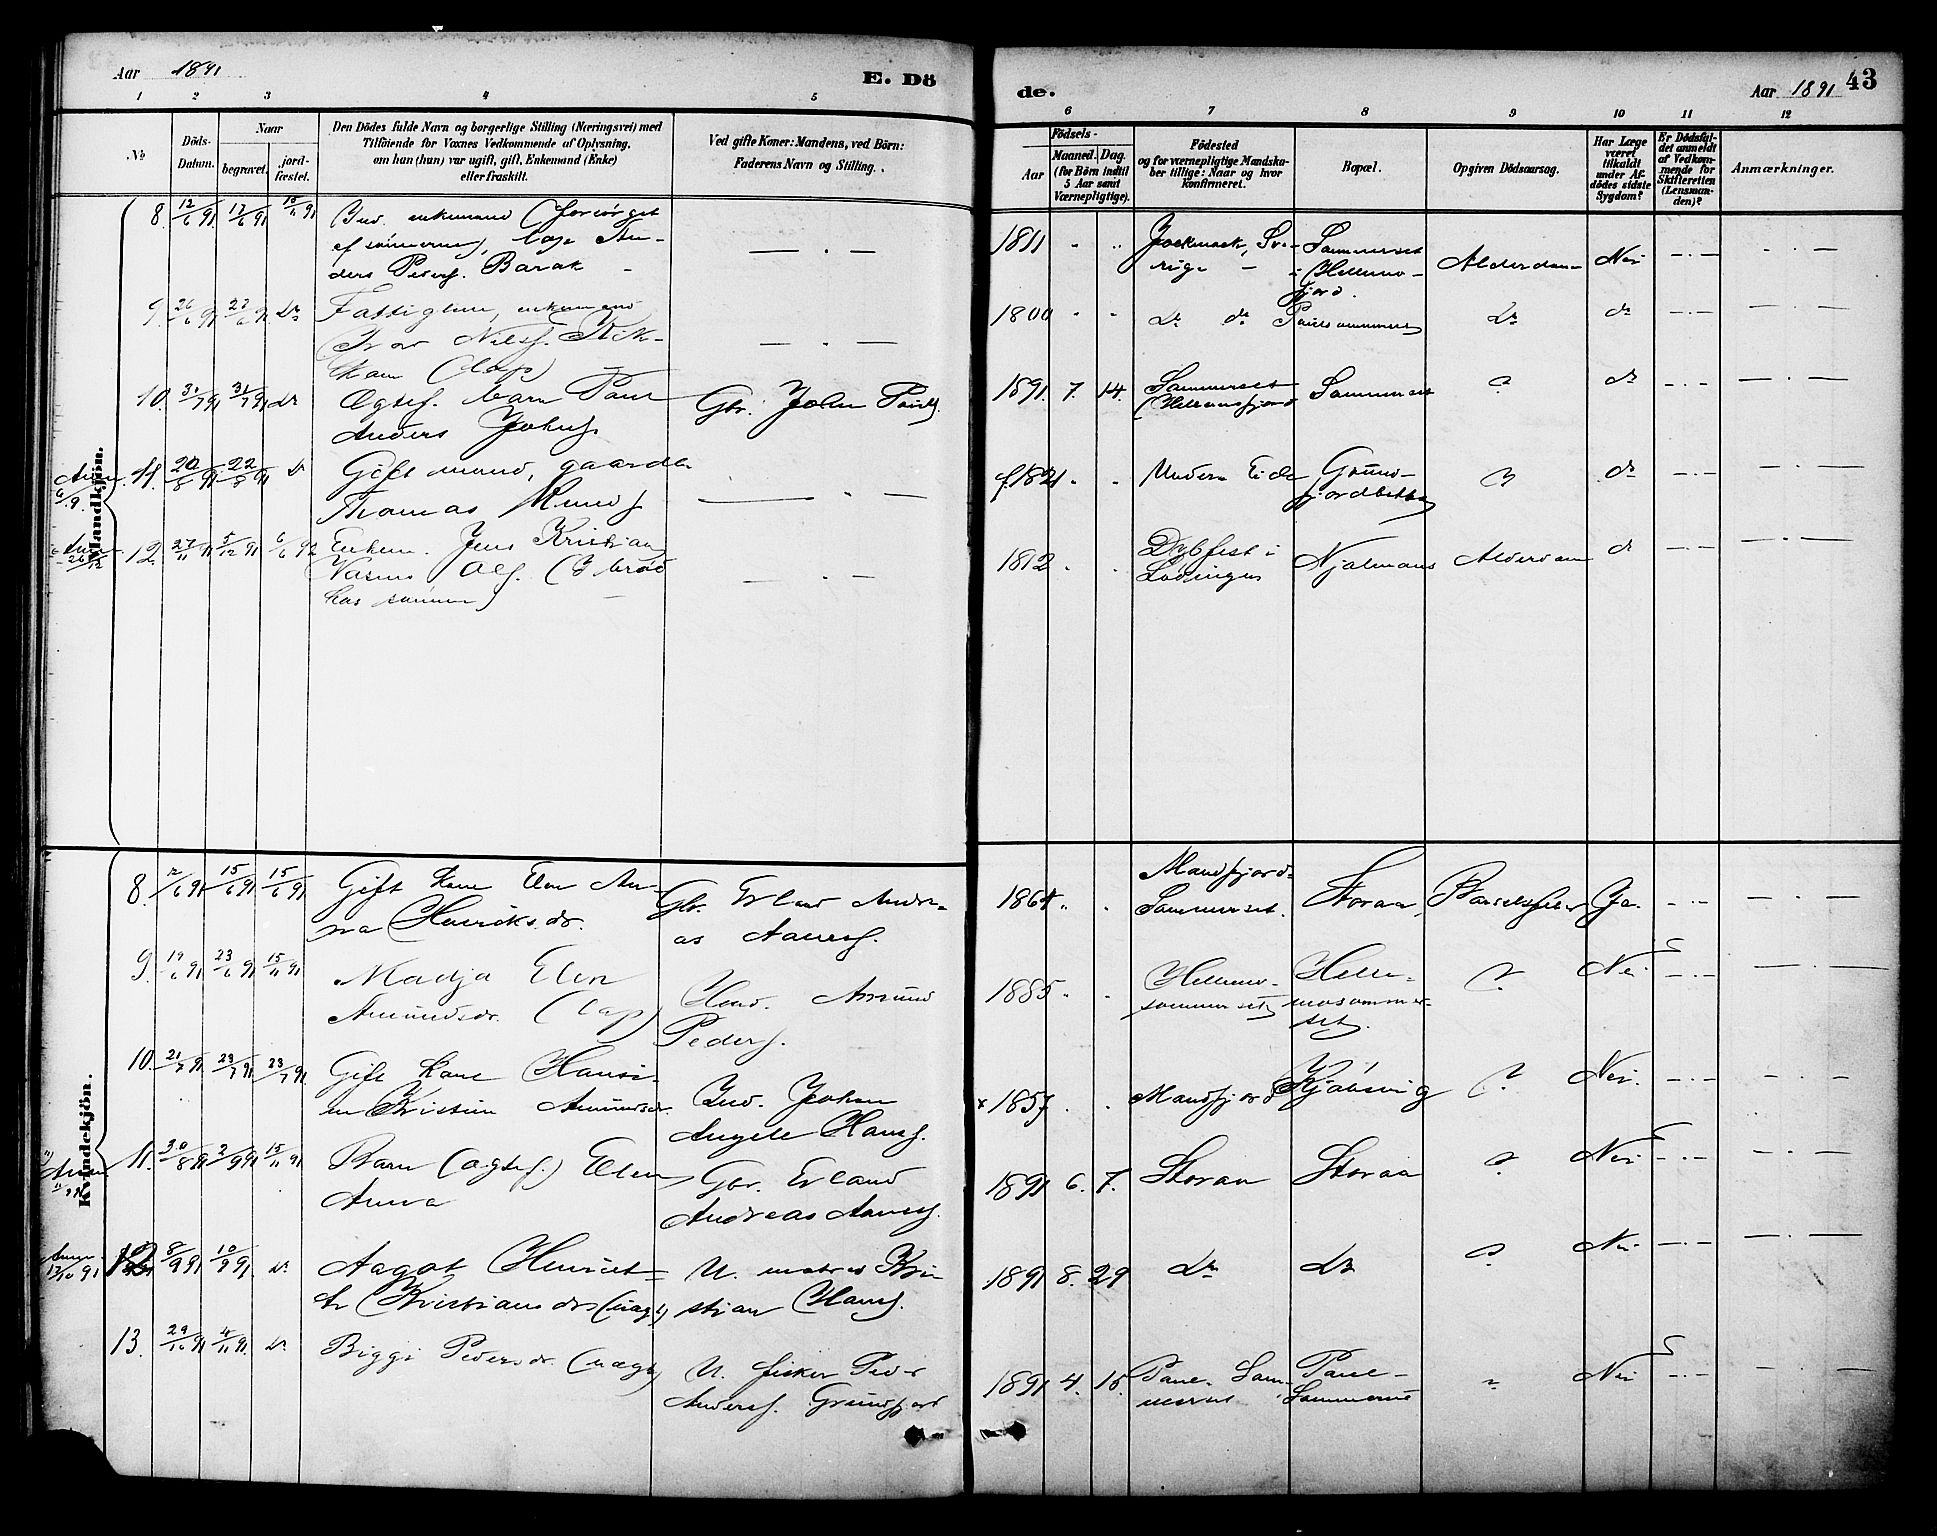 Aar 1891
E. Dö
de.
Aar 1891
43
1 2 3 4 5 6 7 8 9 10 11 12
No
Döds-
Datum.
Naar
begravet.
jord-
fæstet.
Den Dödes fulde Navn og borgerlige Stilling (Næringsvei) med
Tilföiende for Voxnes Vedkommende af Oplysning,
om han (hun) var ugift, gift, Enkemand (Enke)
eller fraskilt.
Ved gifte Koner: Mandens, ved Börn:
Faderens Navn og Stilling.
Födsels-
Aar
Maaned. Dag.
(for Börn indtil
5 Aar samt
Værnepligtige).
Födested
og for værnepligtige Mandska-
ber tillige: Naar og hvor
konfirmeret.
Bopæl.
Opgiven Dödsaarsag.
Har Læge
været
tilkaldt
under Af-
dödes sidste
Sygdom?
Er Dödsfal-
det anmeldt
af Vedkom-
mende for
Skifteretten
(Lensman-
den)?
Anmærkninger.
Mandkjön.
8. 12/6 91 17/6 91
Ind. enkemand (forsörget
af sönnerne), lap An-
ders Peders. Barak
1811 Jockmock, Sve-
rige
Sommerset
i Hellemo-
fjord.
Alderdom Nei
9. 26/6 91 27/6 91 do
Fattiglem, enkemand
Nils.
(lap)
1800 do do Paulsommerset do do
10. 30/7 91 31/7 91 do
Ægtef. barn Paul
Anders Johns.
Gbr. John Pauls.
1891. 7. 14. Sommerset
(Hellemofjord
Sommerset ? do
11. 20/8 91 22/8 91 do
Gift mand, gaardbr.
Tomas Knuds.
f. 1821 Eide Grund-
fjordbotten
? do
12. 27/11 91 5/12 91 6/6 92
Enkem. Jens Kristian
Ols. (
hos sönnen)
1812 i
Lödingen
Njalmans Alderdom do
Kvindekjön.
8. 12/6 91 15/6 91 15/6 91
Gift kone Elen An-
na Henriksdr.
Gbr. Erland Andre-
as Aanes.
1864 Mandfjord-
Sommerset.
Storaa, Barselfeber Ja.
9. 19/6 91 23/6 91 15/11 91
Madja Elen
Amundsdr. (lap)
Amund
Peders.
1885 Hellemo-
sommerset
Helle-
mosommer-
set.
? Nei
10. 21/7 91 23/7 91 23/7 91
Gift kone Hansi-
ne Kristine Amundsdr.
Ind. Johan
Angell Hans.
x 1857 Mandfjord Kjöbsvig ? Nei.
11. 30/8 91 2/9 91 15/11 91
Barn (ægtef.) Elen
Anna
Gbr. Erland
Andreas Aanes.
1891 6. 7. Storaa Storaa ? Nei
12. 8/9 91 10/9 91. do
Aagot Henriet-
te Kristiansdr. (uægt)
U. matros Kri-
stian Hans.
1891 8. 29 do do ? Nei
13. 29/10 91 4/11 91. do
Biggi Pedersdr. (uægt)
U. fisker Peder
Anders. Grundfjord
1891 4. 15. Paul-Som-
merset
Paul-
Sommerset
? Nei